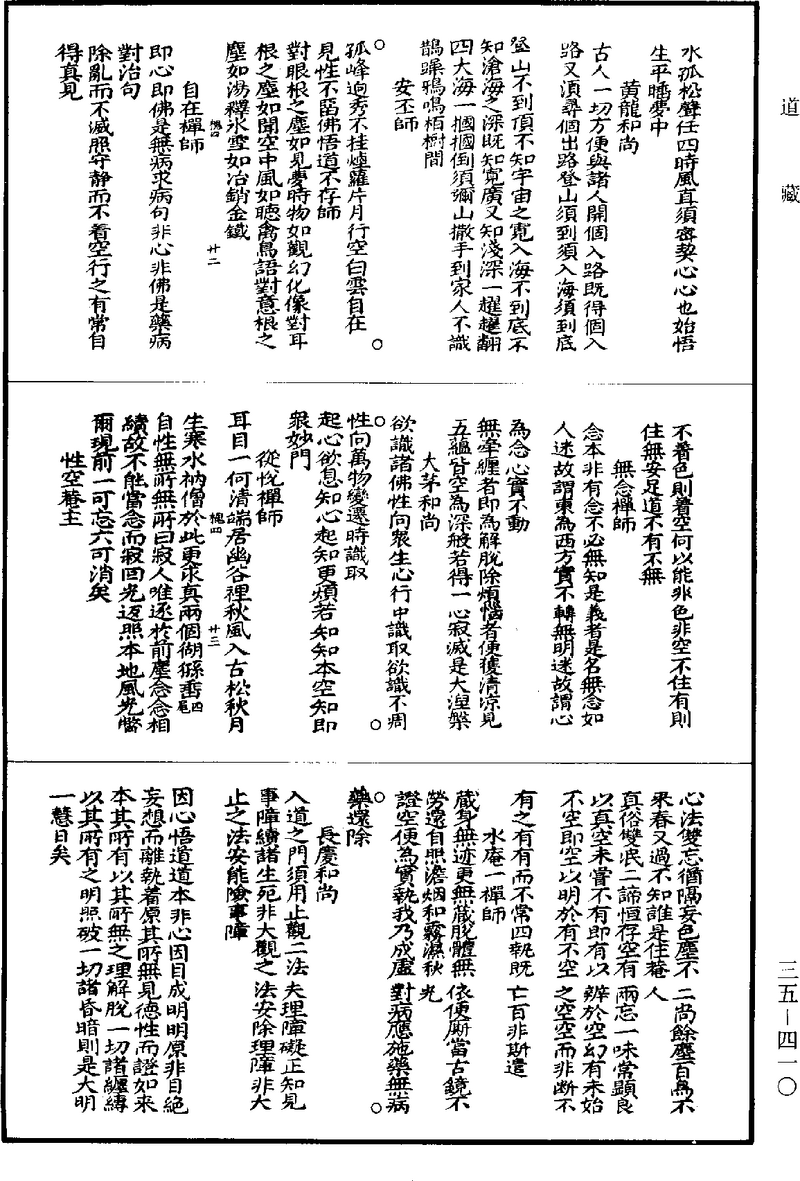 道藏
水孤松聲任四時風直須密契心心也始悟
生平瞌夢中
黃龍和尚
古人一切方便與諸人開個入路既得個入
路又須尋個出路登山須到頂入海須到底
登山不到頂不知宇宙之寬入海不到底不
知滄海之深既知寬廣又知淺深一趯趯翻
四大海一摑摑倒須彌山撒手到家人不識
鵲噪鴉鳴栢樹間
安丕師
○
孤峰迥秀不挂煙蘿片月行空白雲自在
○
見性不留佛悟道不存師
對眼根之塵如見夢時物如觀幻化像對耳
根之塵如聞空中風如聽禽鳥語對意根之
塵如湯釋氷雪如冶銷金鐵
廿二
自在禪師
即心即佛是無病求病句非心非佛是藥病
對治句
除亂而不滅照守静而不着空行之有常自
得真見
不着色則着空何以能非色非空不住有則
住無安足道不有不無
無念禪師
念本非有念不必無知是義者是名無念如
人迷故謂東為西方實不轉無明迷故謂心
為念心實不動
無牽纏者即為解脫除煩惱者便獲清凉見
五蘊皆空為深般若得一心寂滅是大涅槃
大茅和尚
欲識諸佛性向衆生心行中識取欲識不凋
○
性向萬物變遷時識取
○
起心欲息知心起知更煩若知知本空知即
衆妙門
從悅禪師
耳目一何清端居幽谷裡秋風入古松秋月
四
廿三
生寒水衲僧於此更求真兩個猢猻垂四尾
自性無所無所曰寂人唯逐於前塵念念相
續故不能當念而寂回光返照本地風光瞥
爾現前一可忘六可消矣
性空菴主
心法雙忘猶隔妄色塵不二尚餘塵百鳥不
來春又過不知誰是住菴人
真俗雙泯二諦恒存空有兩忘一味常顯良
以真空未嘗不有即有以辨於空幻有未始
不空即空以明於有不空之空空而非斷不
有之有有而不常四執既亡百非斯遣
水庵一禪師
藏身無迹更無藏脫體無依便厮當古鏡不
勞還自照澹烟和霧濕秋光
證空便為實執我乃成虛對病應施藥無病
○
藥還除
○
長慶和尚
入道之門須用止觀二法夫理障礙正知見
事障續諸生死非大觀之法安除理障非大
止之法安能險事障
因心悟道道本非心因目成明明原非目絕
妄想而離執着原其所無見德性而證如來
本其所有以其所無之理解脫一切諸纏縛
以其所有之明照破一切諸昏暗則是大明
一慧日矣
三五—四一〇